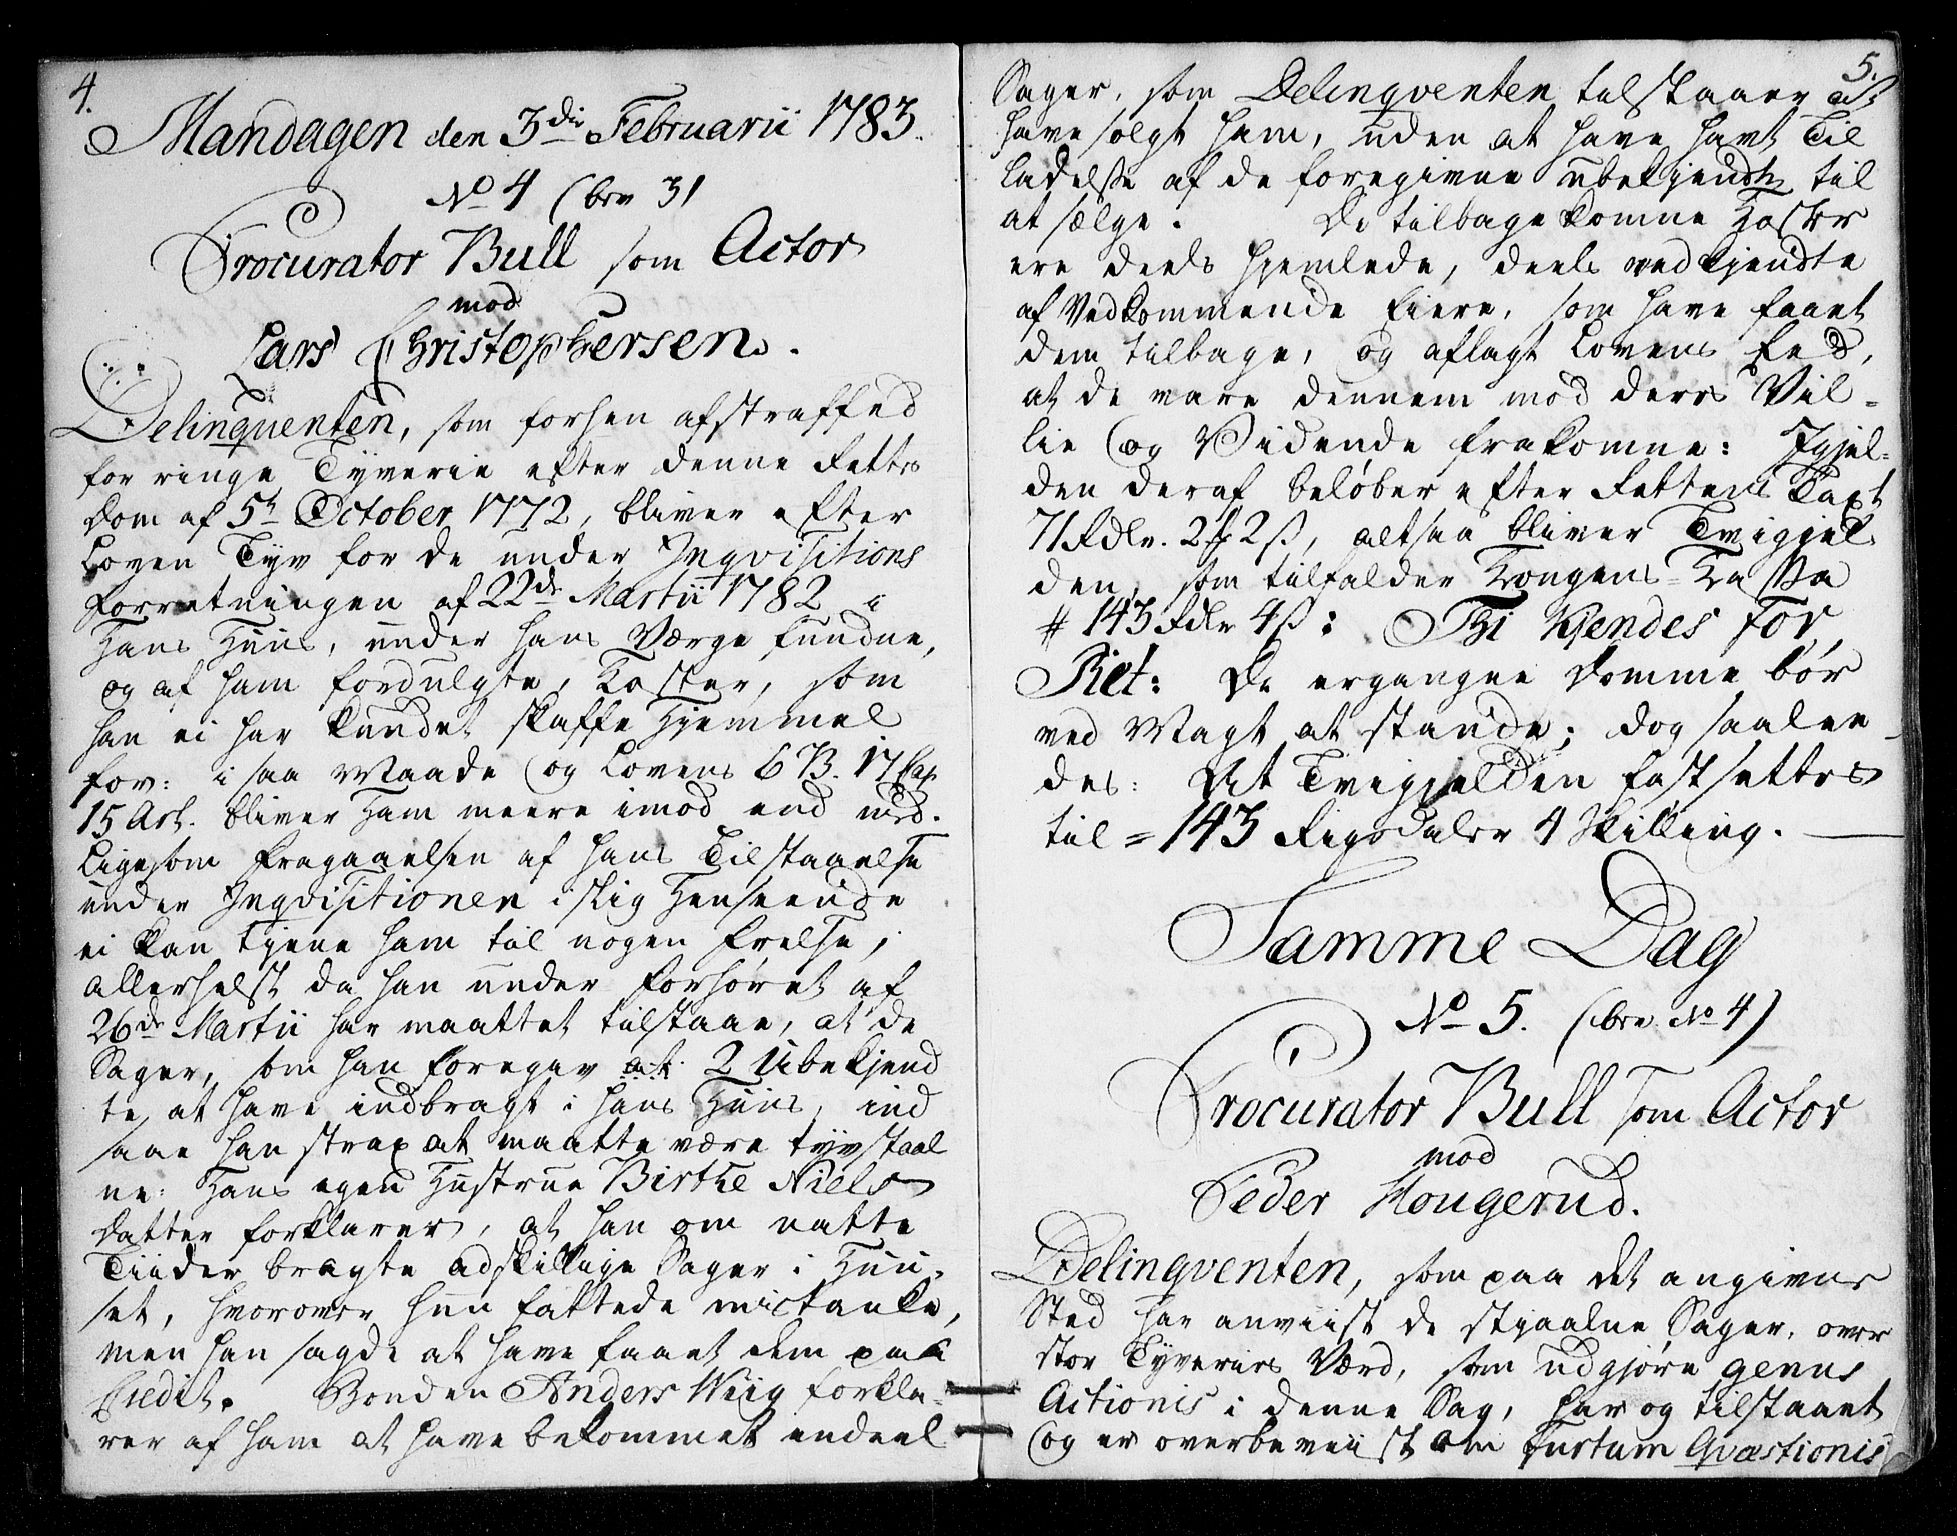 4.
Mandagen den 3die Februarii 1783.
No 4 (bev 3)
Procurator Bull som Actor
mod
Lars Christophersen.
Delinquenten, som forhen afstraffed
for ringe Tyverie efter denne Retts
Dom af 5t October 1772, bliver efter
Loven Tyv for de under Inqvisitions
Forretningen af 22de Martii 1782 i
Hans Huus, under hans Værge fundne,
og af ham fordulgte, Koster, som
han ei har kundet skaffe Hjemmel
for: i saa Maade og Lovens 6 B. 17 Cap
15 Art. bliver Ham meere imod end med.
Ligesom Fragaaelsen af hans Tilstaaelse
under Inqvisitionen i slig Henseende
ei kan tjene ham til nogen Frelse,
allerhelst da han under Forhøret af
26de Martii har maattet tilstaae, at de
Sager, som han foregav at 2 Ubekjend
te at have indbragt i hans Huus, ind
saae han strax at maatte være tyvstaal
ne: Hans egen Hustrue Birthe Niels
Datter forklarer, at han om natte
Tiider bragte adskillige Sager i Huu-
set, hvorover hun fattede mistanke,
men han sagde at have faaet dem paa
Credit. Bonden Anders Wiig forkla-
rer af ham at have bekommet endeel
5.
Sager, som Delinqventen tilstaaer at
have solgt ham, uden at have havt Til
ladelse af de foregivne ubekjendte til
at sælge. De tilbagekomne Koster
ere deels hjemlede, deels vedkjendte
af Vedkommende Eiere, som have faaet
dem tilbage, og aflagt Lovens Eed,
at de vare dennem mod deres Vil-
lie og Vidende frakomne: Igjel-
den deraf beløber efter Rettens Taxt
71 Rdlr. 2 ß, altsaa bliver Tvigjel
den, som tilfalder Kongens Kassa
# 143 Rdlr 4 ß: Thi Kjendes for
Ret: De ergangne Domme bør
ved Magt at stande; dog saalee-
des: At Tvigjelden fastsettes
til = 143 Rigsdaler 4 Skilling.
Samme Dag
No 5. (bev. No 4)
Procurator Bull som Actor
mod
Peder Hougerud.
Delinqventen, som paa det angivne
Sted har anviist de stjaalne Sager, over
stor Tyveries Værd, som udgjøre genus
Actionis i denne Sag, har og tilstaaet
og er overbeviist om furtum Qvæstionis